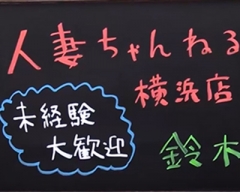 人妻ちゃんねる
横浜店
未経験
大歓迎
鈴木